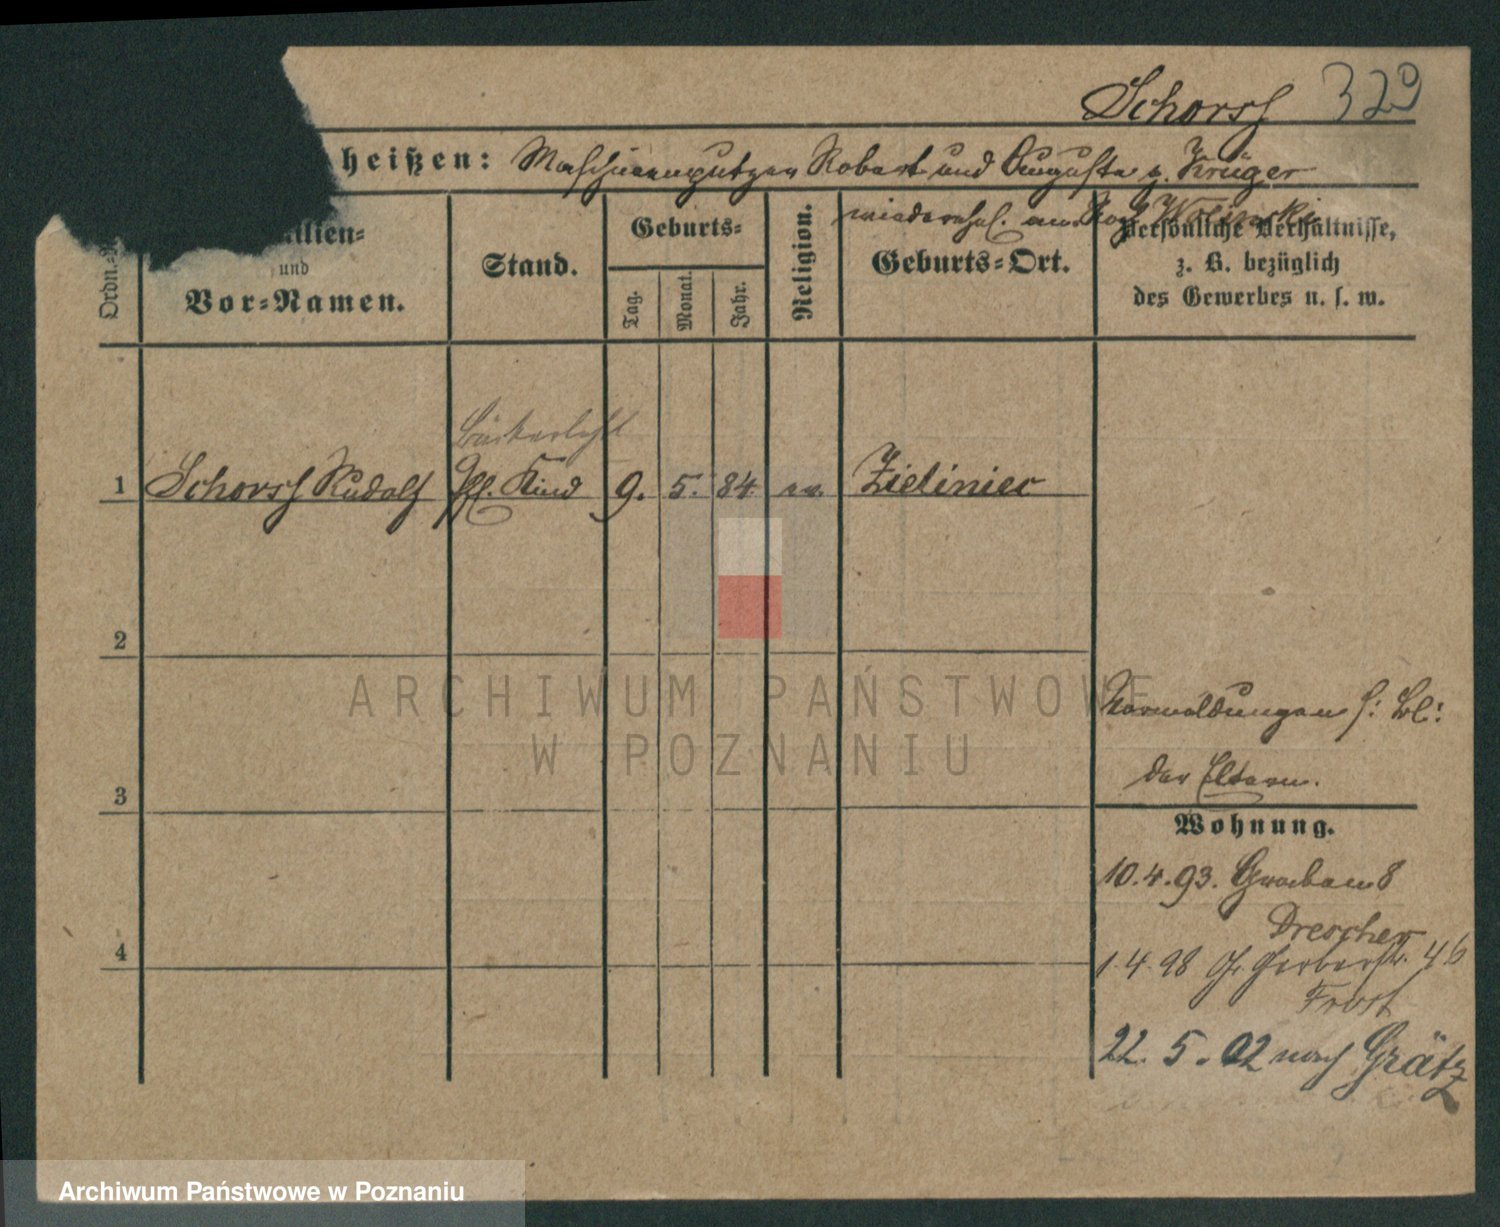 Schorsch 329
heißen: Maschinenputzer Robert und Auguste g. Krüger
wiederverh. an Karl Wolinski
Ordn.
ilien=
und
Vor=Namen.
Stand.
Geburts=
Tag.
Monat.
Jahr.
Religion.
Geburts=Ort.
Persönliche Verhältnisse,
z. B. bezüglich
des Gewerbes u. s. w.
Bäckerlehrl
1 Schorsch Rudolf Pfl. Kind 9. 5. 84 ev. Zieliniec
2
ARCHIWUM PAŃSTWOWE
W POZNANIU
Vormeldungen s: Bl:
der Eltern.
3
Wohnung.
10.4.93. Graben 8
Drescher
4
1.4.98 Gr Gerberstr. 46
Frost
22. 5. 02 nach Grätz
Archiwum Państwowe w Poznaniu